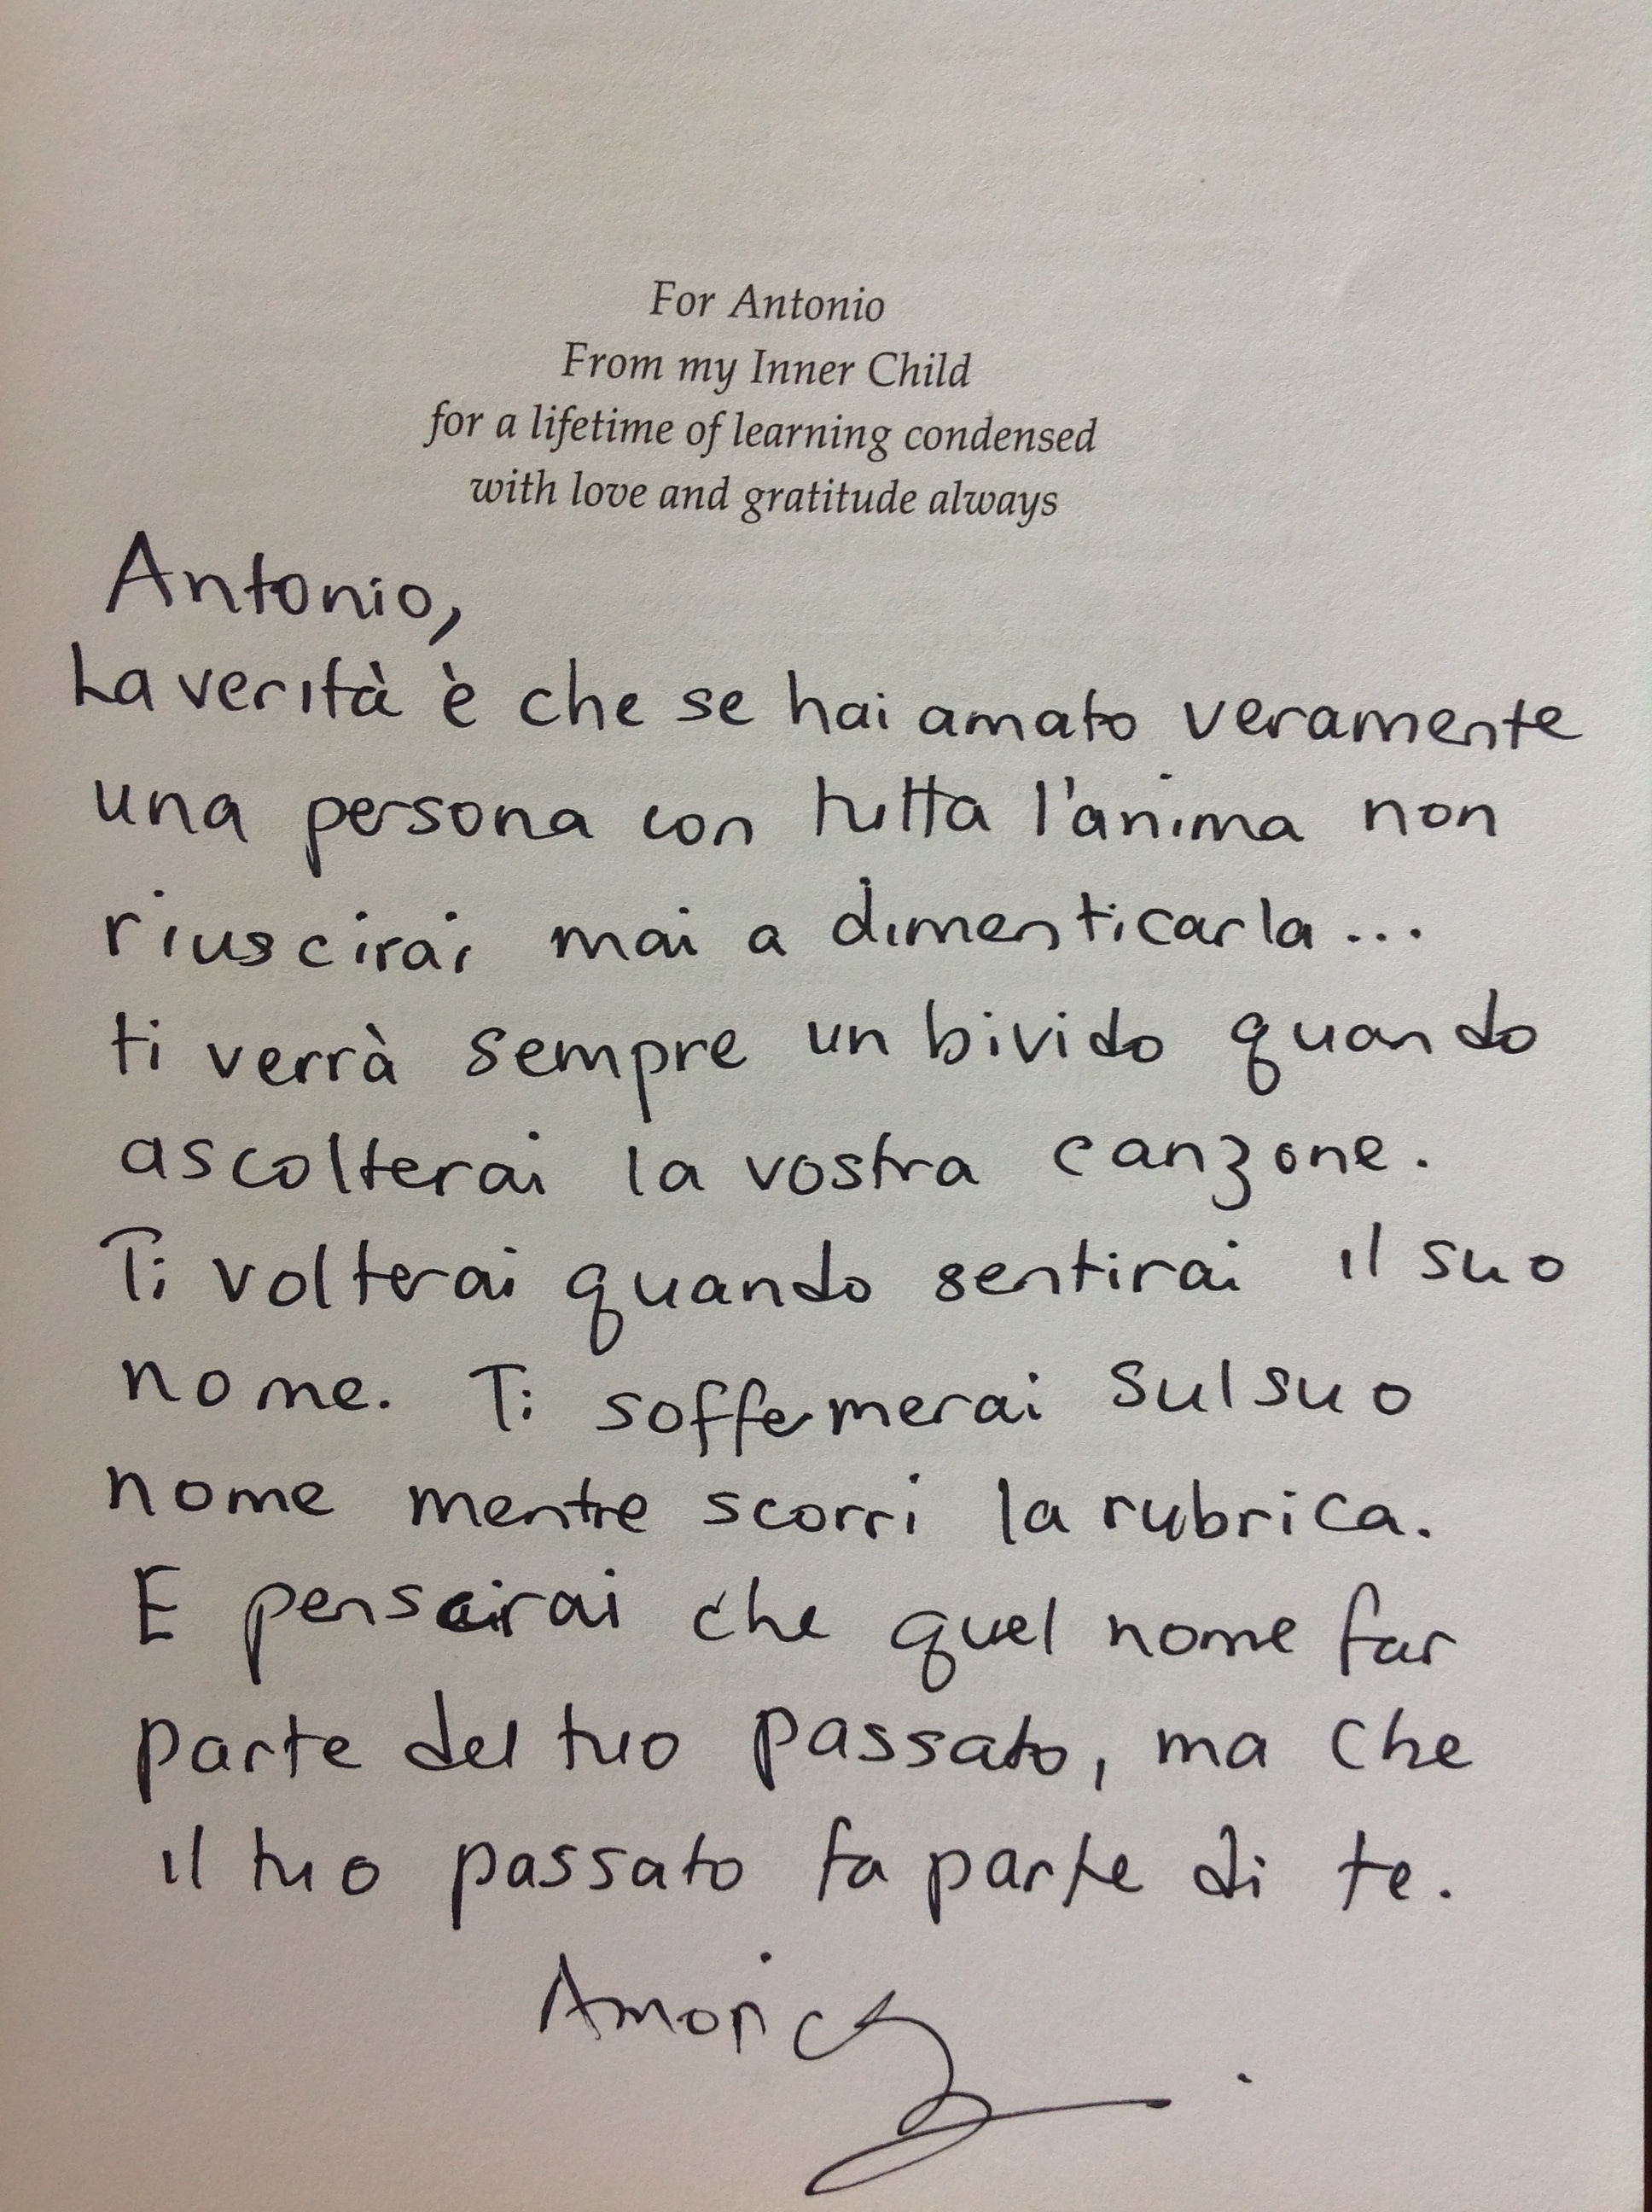 For Antonio
From my Inner Child
for a lifetime of learning condensed
with love and gratitude always
Antonio,
La verità è che se hai amato veramente
una persona con tutta l'anima non
riuscirai mai a dimenticarla...
ti verrà sempre un bivido quando
ascolterai la vostra canzone.
Ti volterai quando sentirai il suo
nome. Ti soffermerai sul suo
nome mentre scorri la rubrica.
E che quel nome far
parte del tuo passato, ma che
il tuo passato fa parte di te.